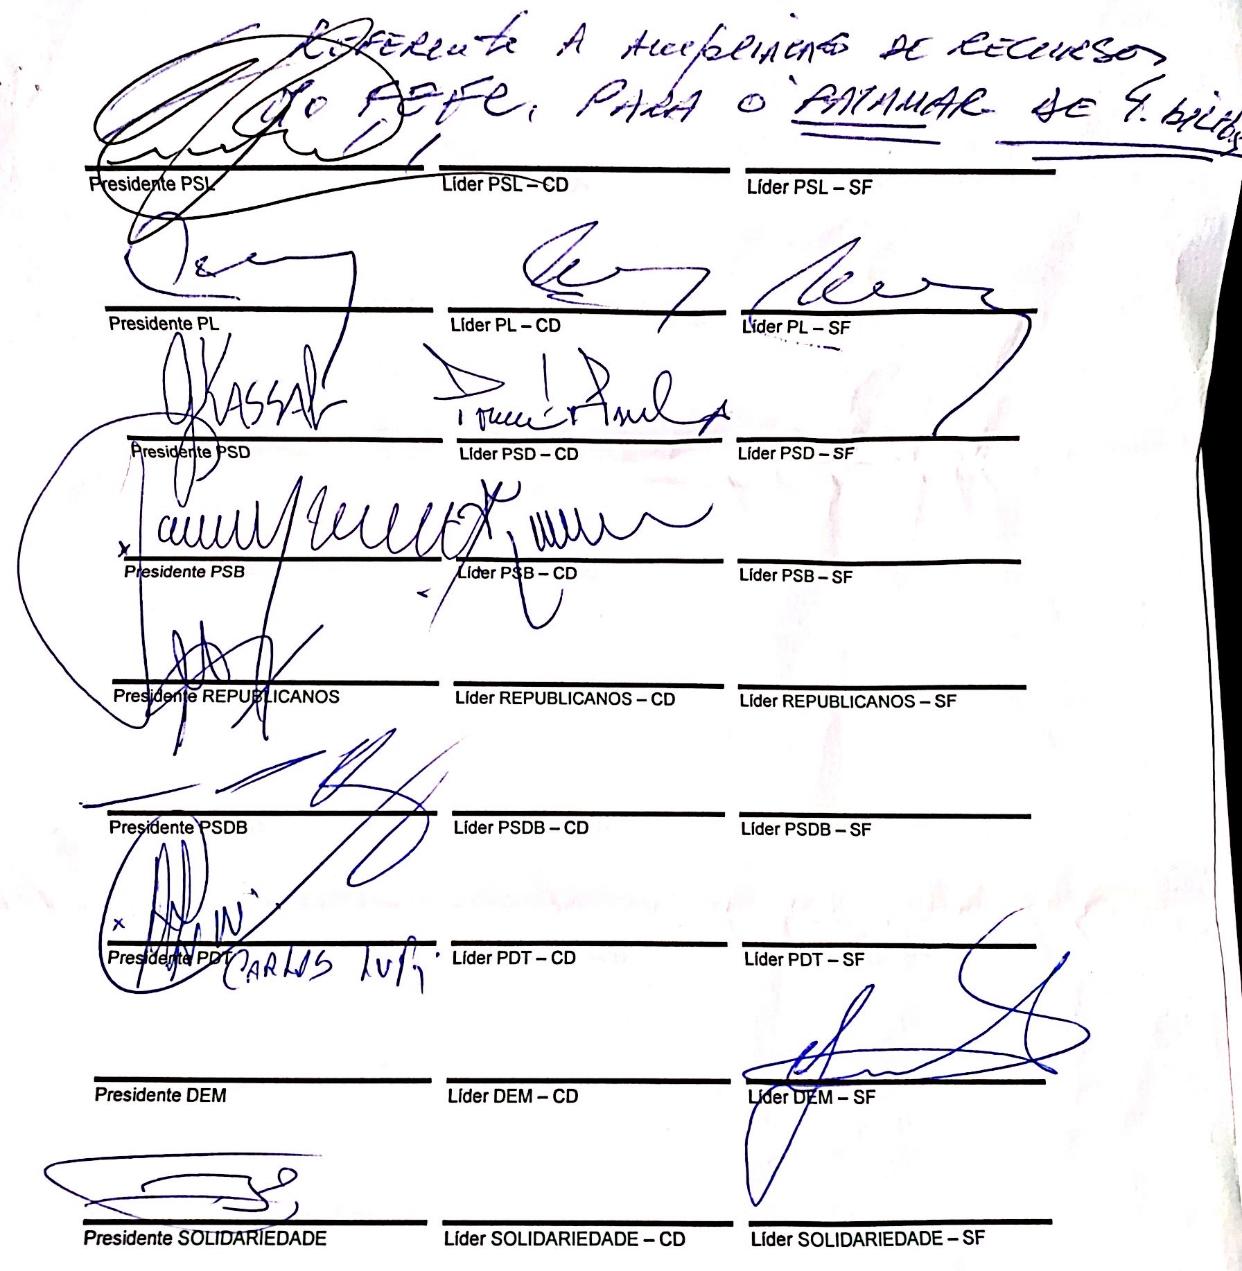 REFERENTE A AMPLIACAO DE RECURSOS
DO FEFC, PARA O PATAMAR DE 4. bilhões
Presidente PSL Líder PSL – CD Líder PSL – SF
Presidente PL Líder PL – CD Líder PL – SF
GKASSAB
Presidente PSD Líder PSD – CD Líder PSD – SF
x
Presidente PSB Líder PSB – CD Líder PSB – SF
Presidente REPUBLICANOS Líder REPUBLICANOS – CD Líder REPUBLICANOS – SF
Presidente PSDB Líder PSDB – CD Líder PSDB – SF
x
Presidente PDT Líder PDT – CD Líder PDT – SF
CARLOS LUPI
Presidente DEM Líder DEM – CD Líder DEM – SF
Presidente SOLIDARIEDADE Líder SOLIDARIEDADE – CD Líder SOLIDARIEDADE – SF